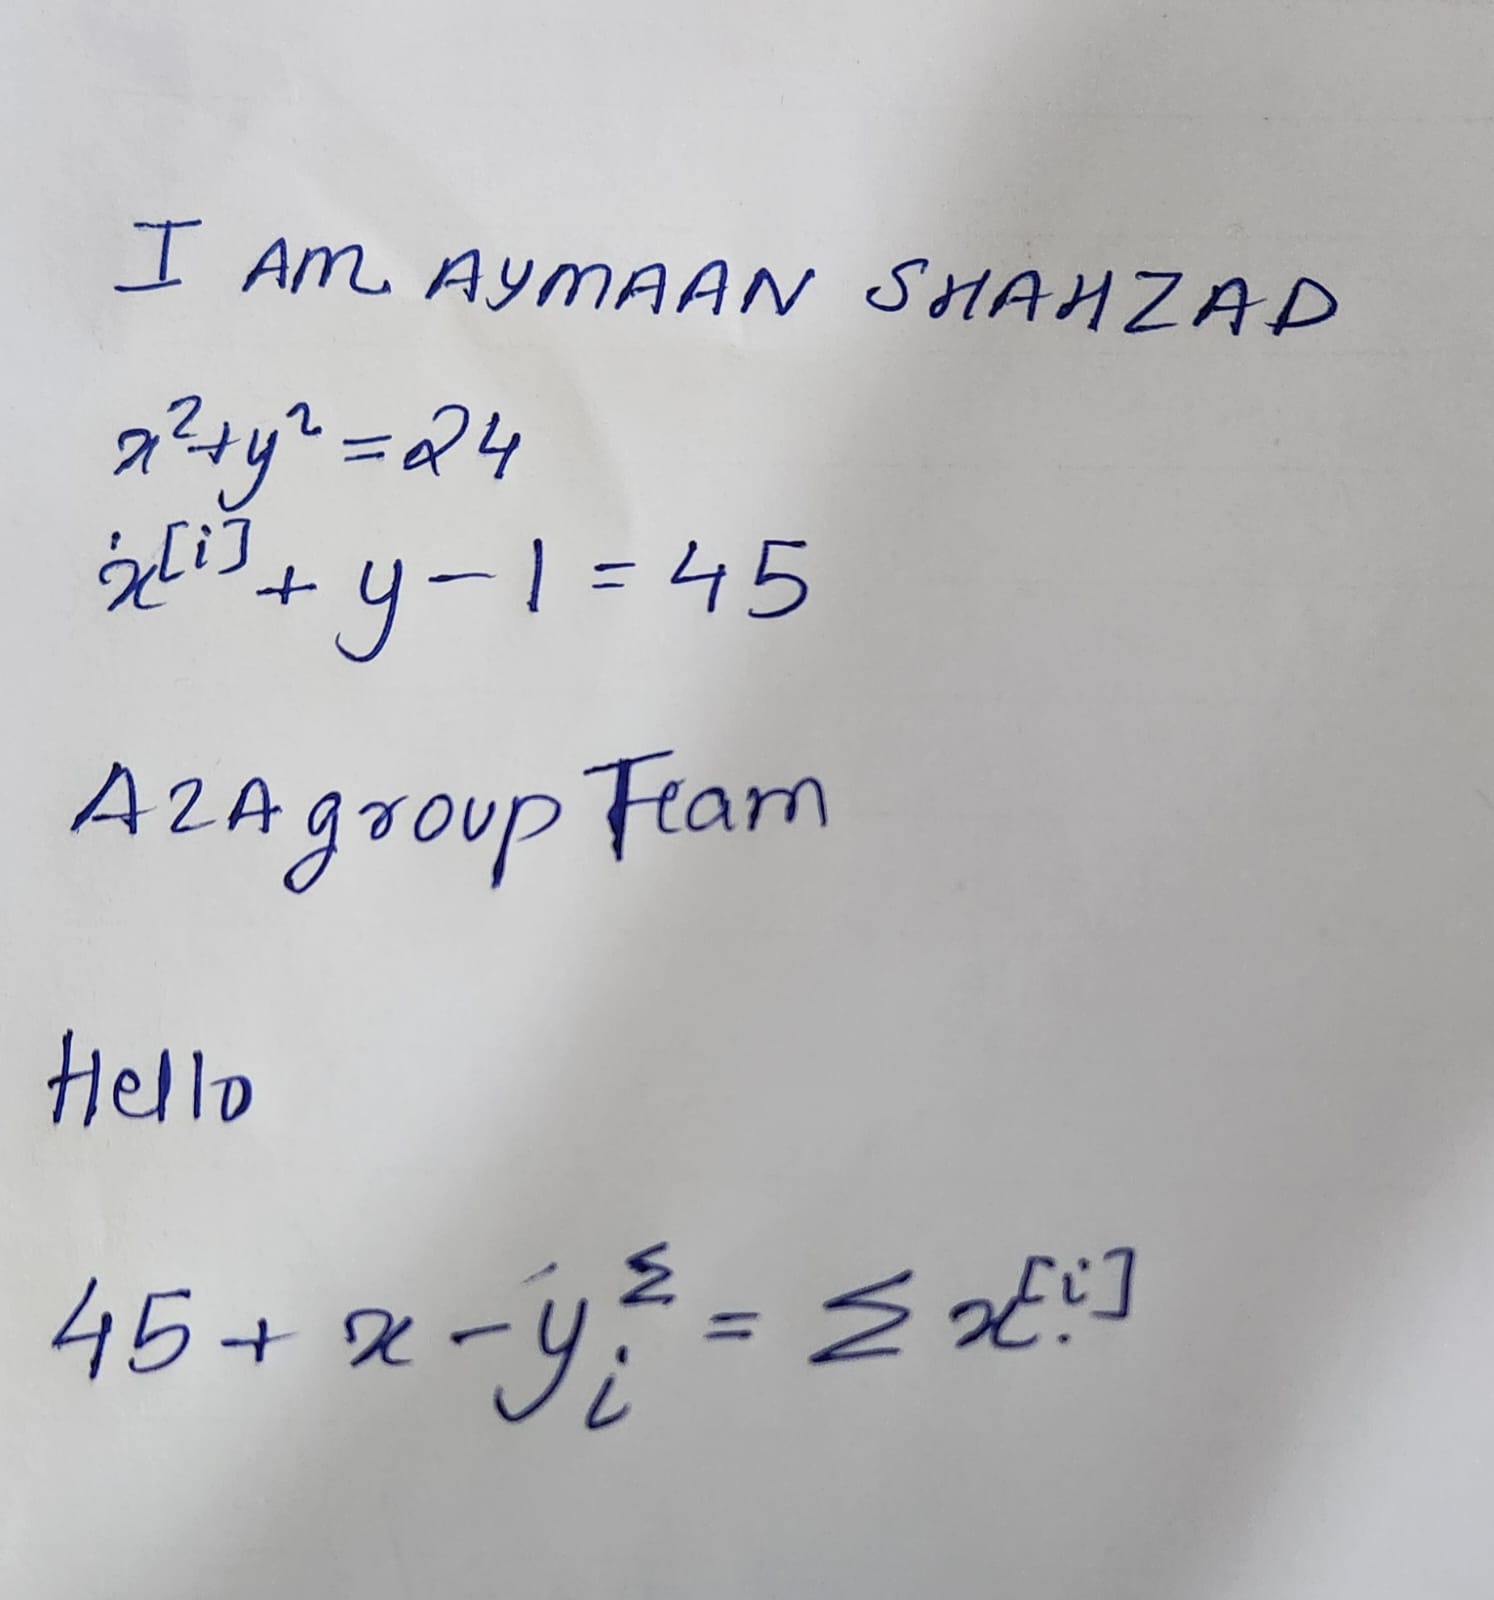 I AM AYMAAN SHAHZAD
x²+y²=24
ẋ^[i] + y - 1 = 45
A2A group Team
Hello
45 + x - y_i^Σ = Σ x^[i]